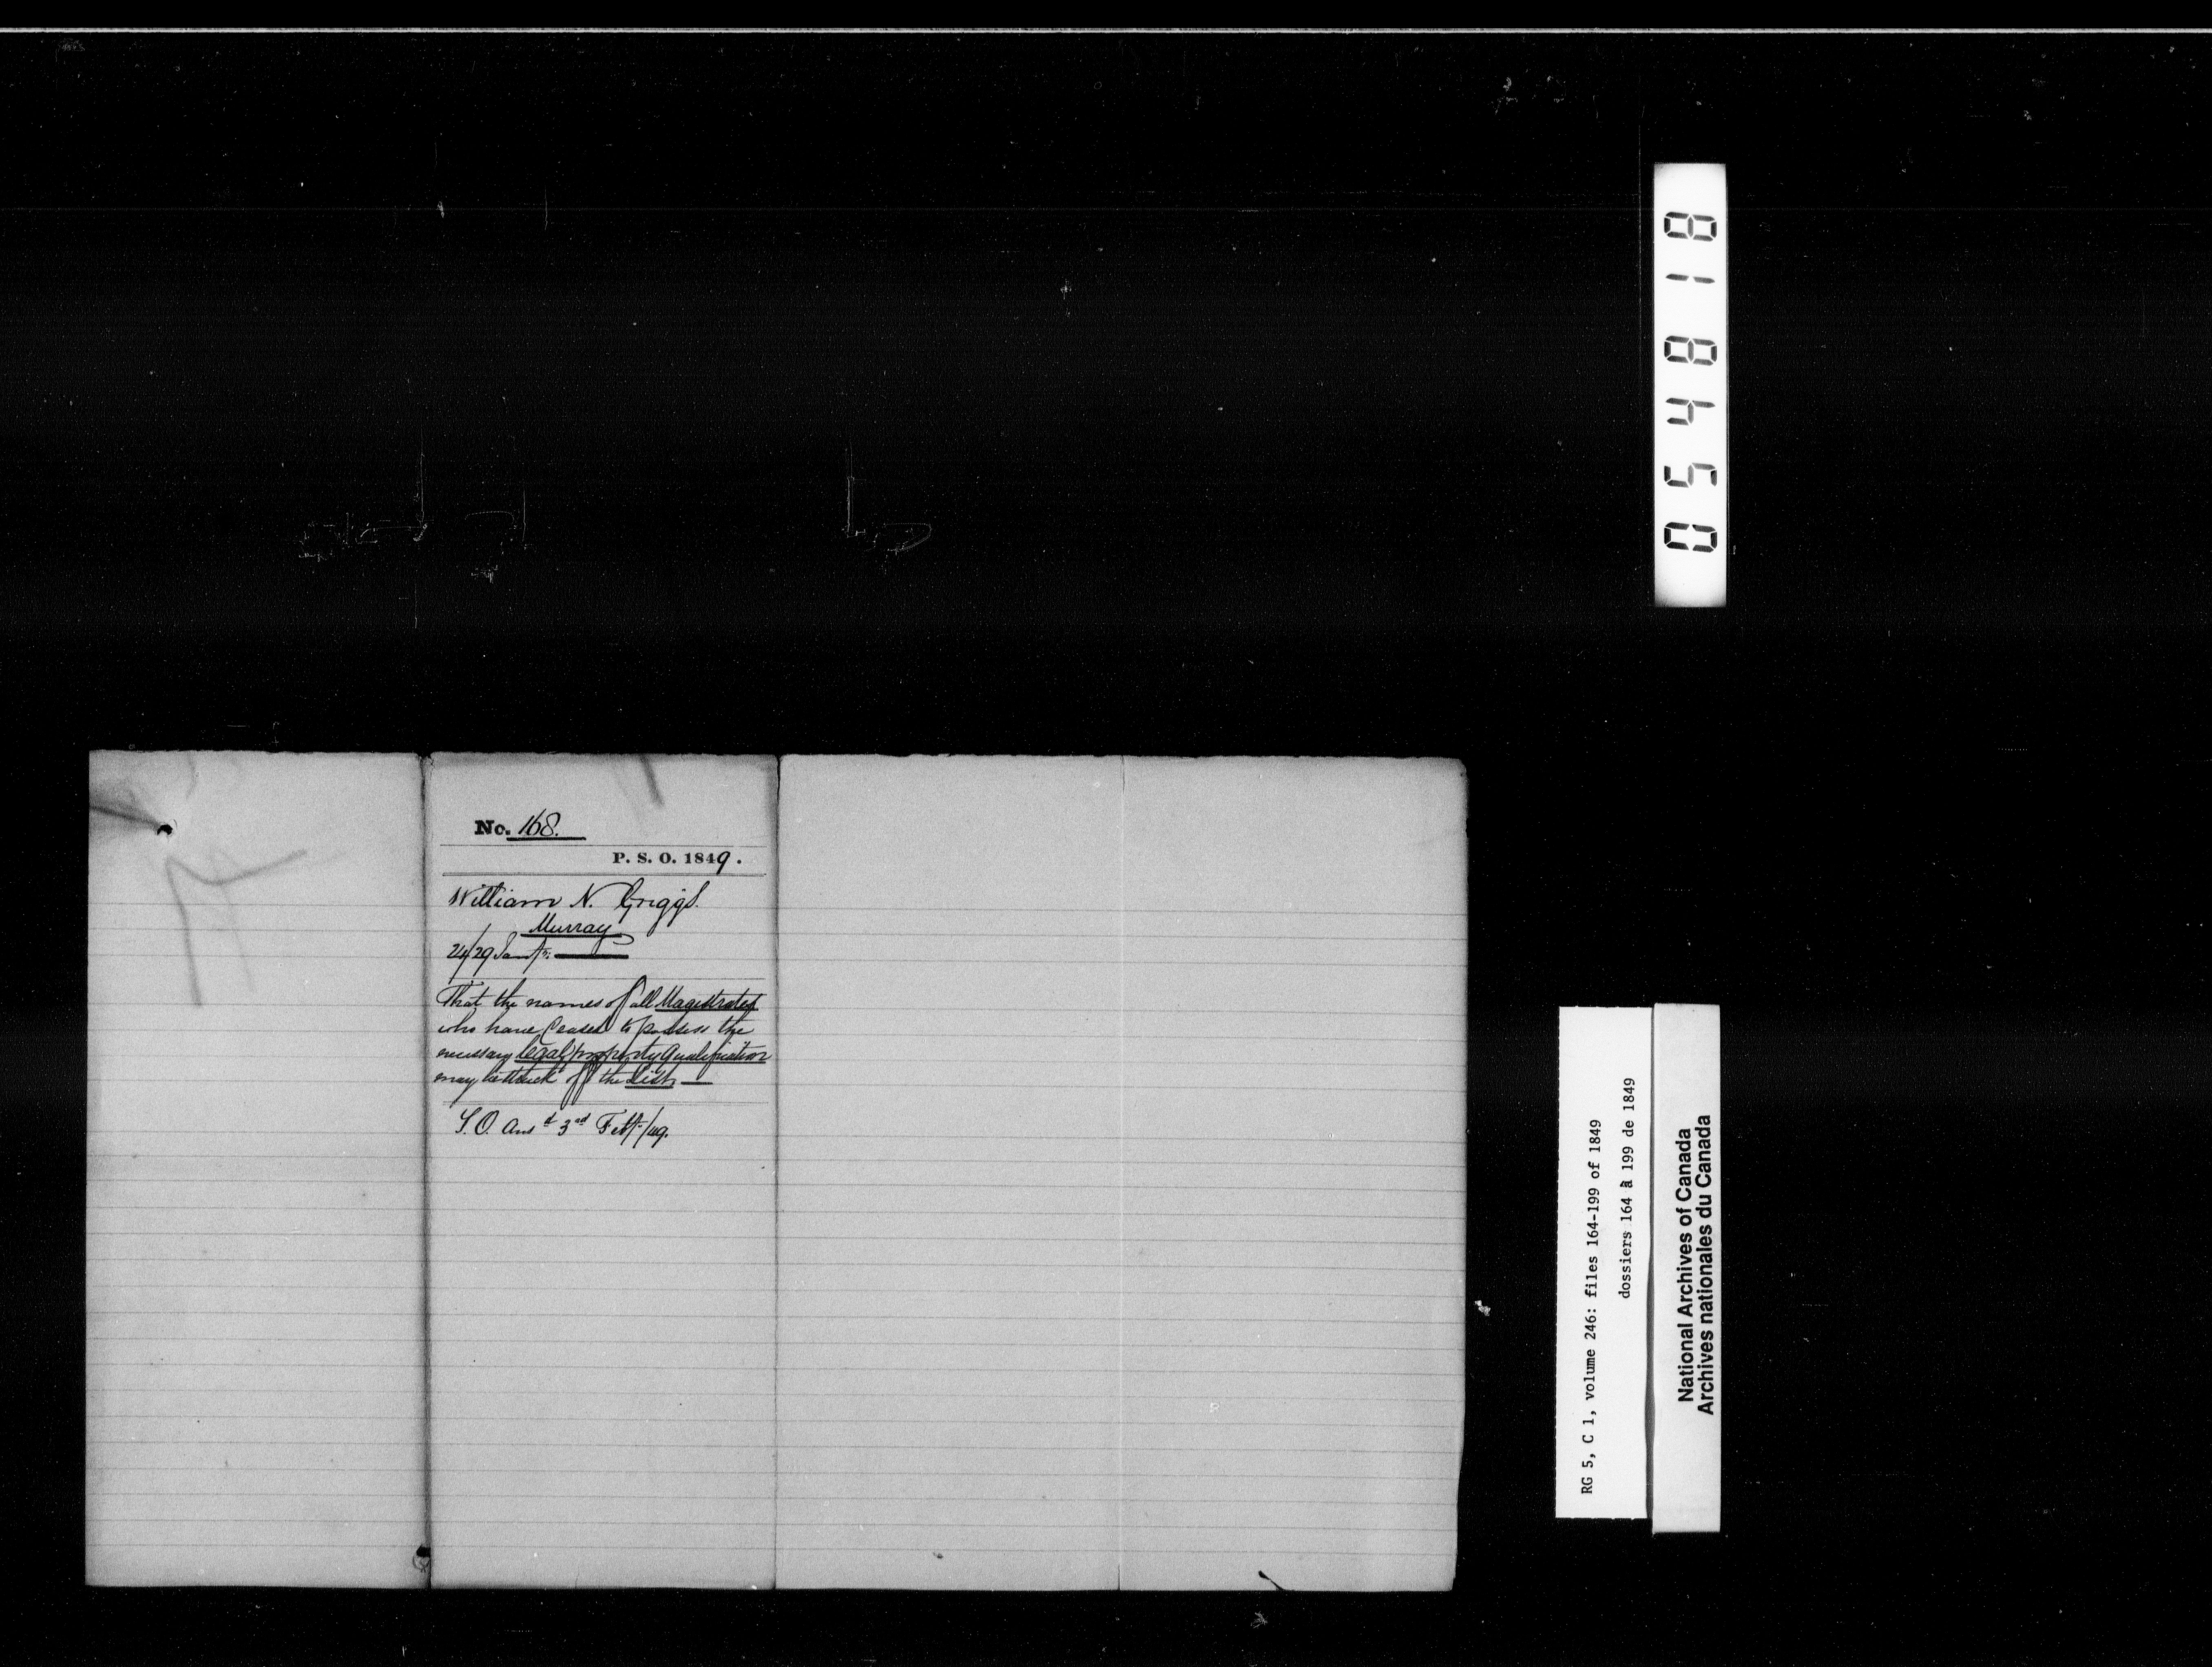 No. 168.
P. S. O. 1849.
William N. Griggs.
Murray
24/29 Jany.
That the names of all Magistrates
who have Ceased to possess the
necessary legal property qualification
may be struck off the List
S.O. Ansd 3rd Feby/49.
054818
RG 5, C 1, volume 246: files 164-199 of 1849
dossiers 164 à 199 de 1849
National Archives of Canada
Archives nationales du Canada